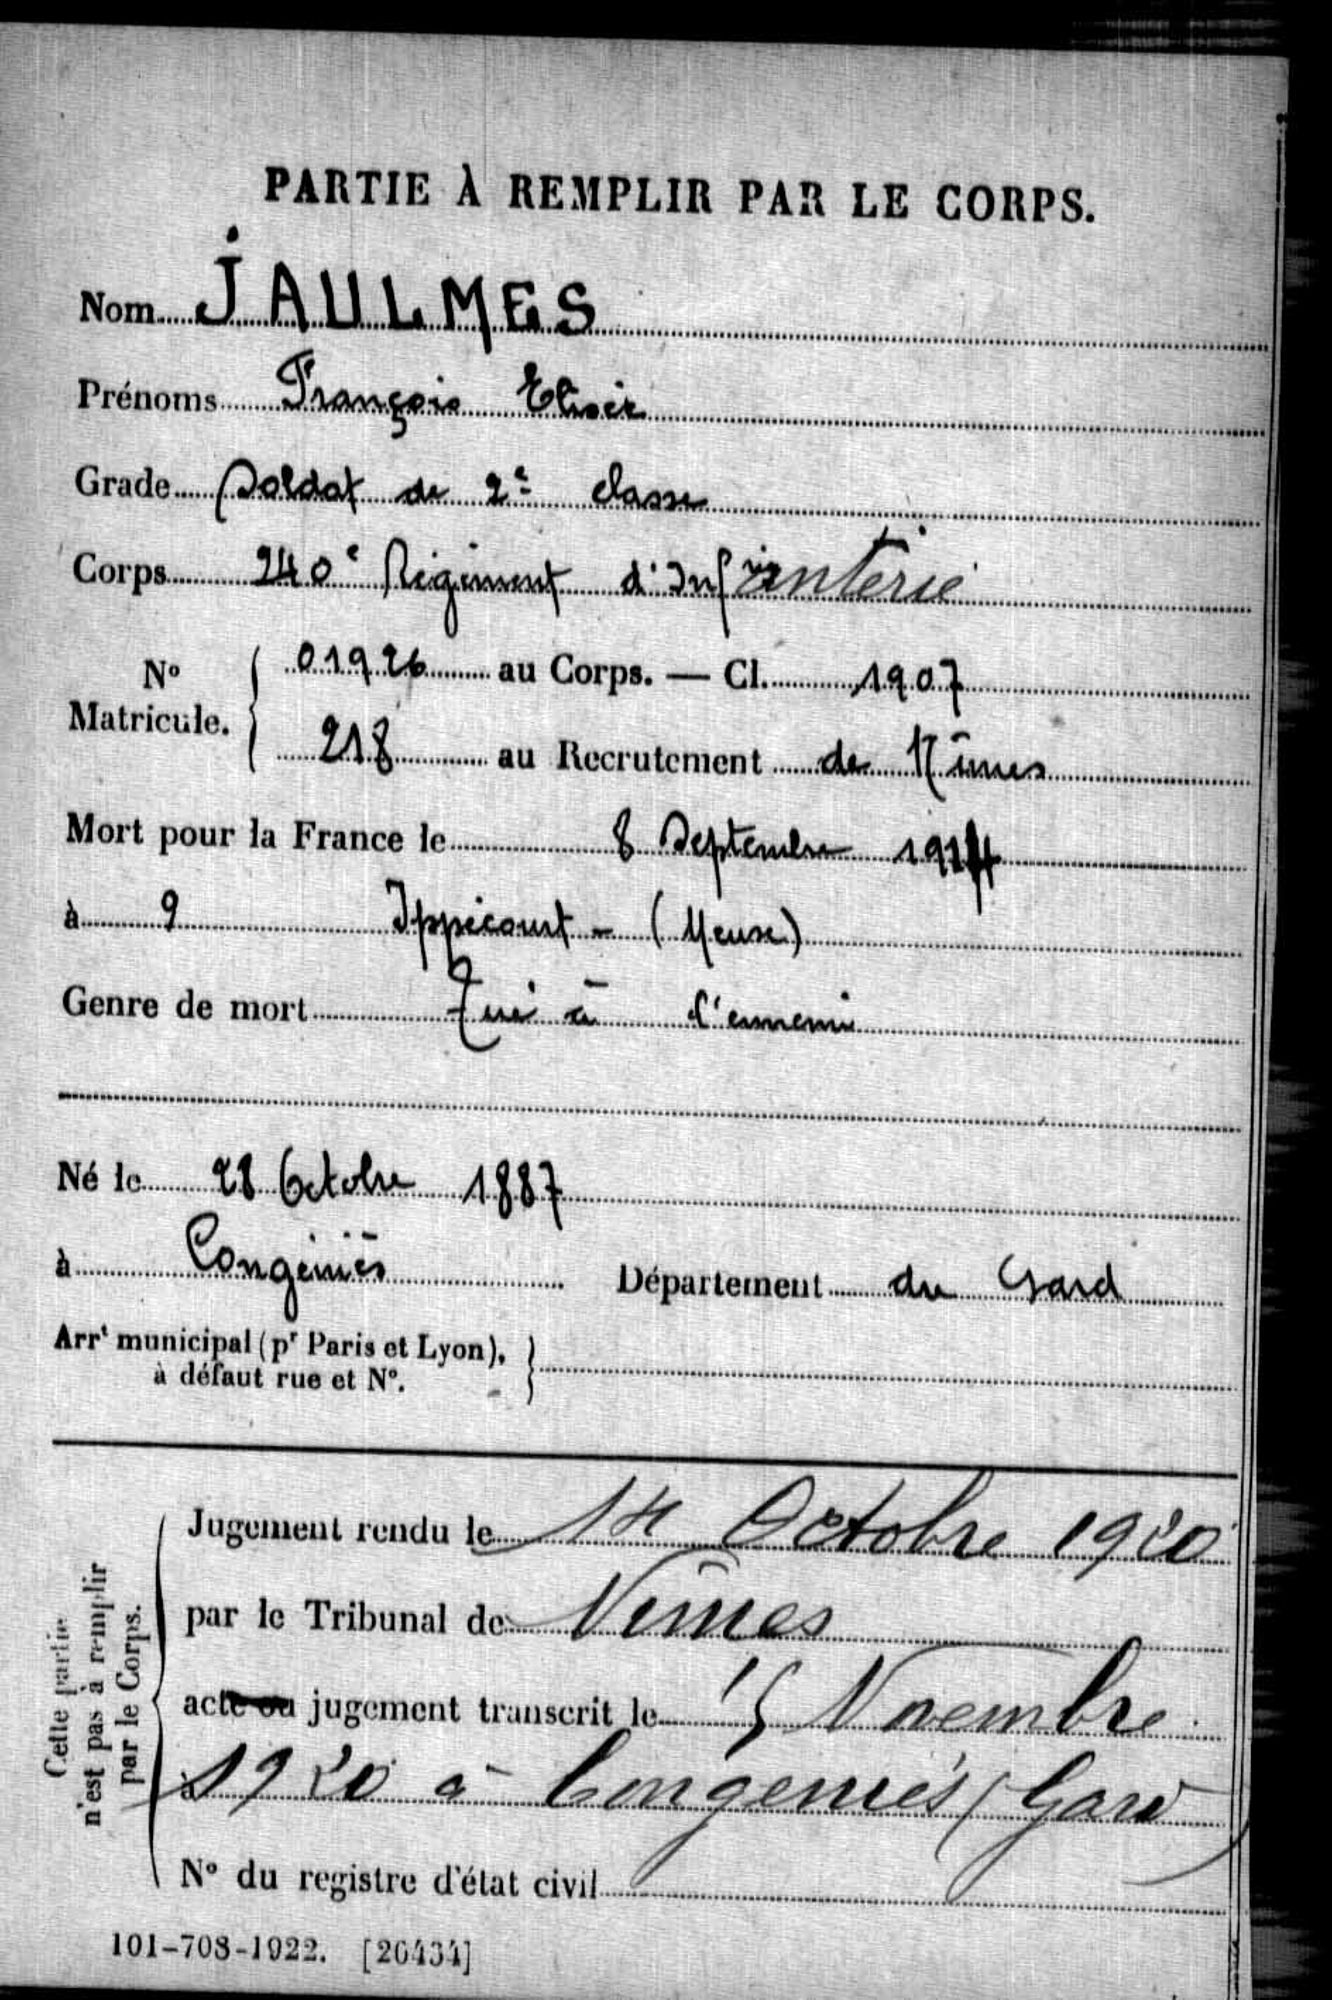 PARTIE À REMPLIR PAR LE CORPS.
Nom JAULMES
Prénoms François Elisée
Grade Soldat de 2e classe
Corps 240e Régiment d'Infanterie
No Matricule. 01926 au Corps. — Cl. 1907
218 au Recrutement de Nîmes
Mort pour la France le 8 Septembre 1914
à 9 Ippécourt - (Meuse)
Genre de mort Tué à l'ennemi
Né le 28 Octobre 1887
à Congéniès Département du Gard
Arrt municipal (pr Paris et Lyon),
à défaut rue et No.
Cette partie
n'est pas à remplir
par le Corps.
Jugement rendu le 14 Octobre 1920
par le Tribunal de Nîmes
acte ou jugement transcrit le 15 Novembre
à 1920 à Congeniès (Gard)
No du registre d'état civil
101-708-1922. [26434]